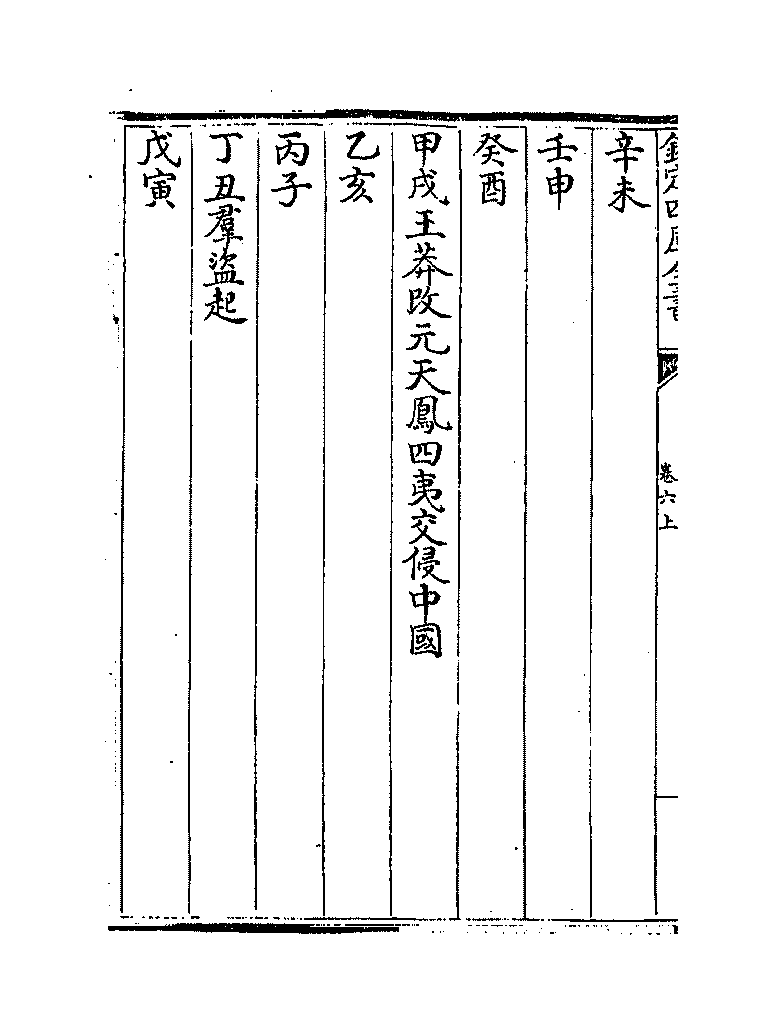 欽定四庫全書
卷六上
辛未
壬申
癸酉
甲戌王莽改元天鳳四夷交侵中國
乙亥
丙子
丁丑羣盜起
戊寅